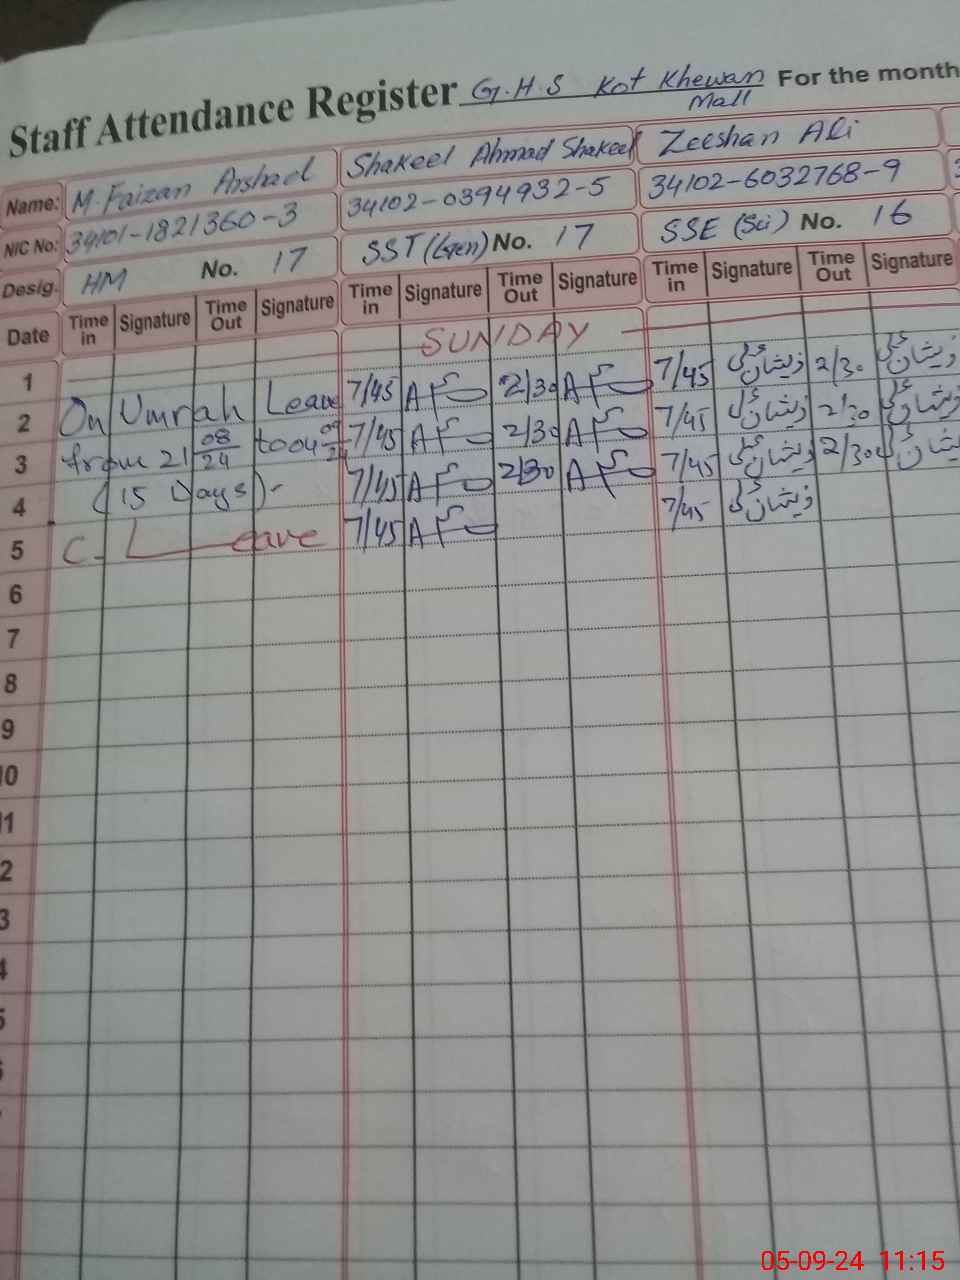 Staff Attendance Register G.H.S Kot Khewan Mall For the month
Name: M. Faizan Arshad Shakeel Ahmad Shakeel Zeeshan Ali
NIC No: 34101-1821360-3 34102-0394932-5 34102-6032768-9
Desig. HM No. 17 SST (Gen) No. 17 SSE (Sci) No. 16
Date Time in Signature Time Out Signature Time in Signature Time Out Signature Time in Signature Time Out Signature
1 SUNDAY
2 On Umrah Leave 7/45 2/30 7/45 ذیشان علی 2/30 ذیشان علی
3 from 21 08/24 to 04 09/24 7/45 2/30 7/45 ذیشان علی 2/30 ذیشان علی
4 (15 Days)- 7/45 2/30 7/45 ذیشان علی 2/30 ذیشان علی
5 C. Leave 7/45 7/45 ذیشان علی
6
7
8
9
10
11
2
3
4
5
05-09-24 11:15